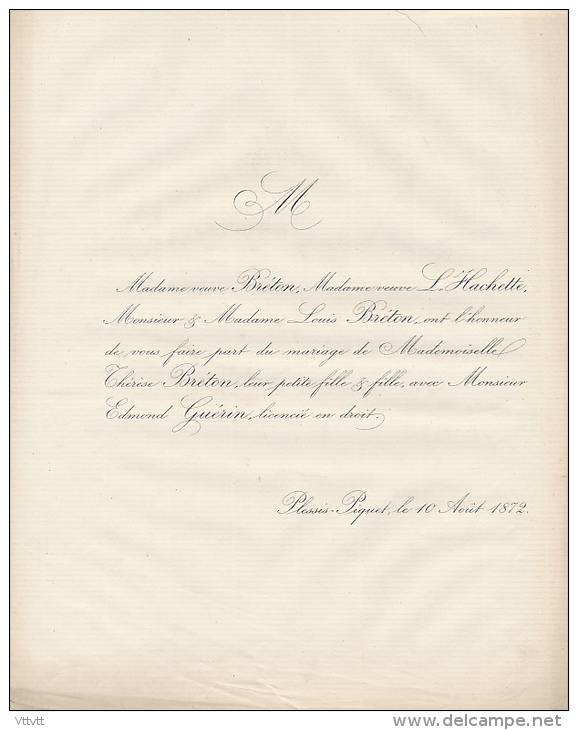 M
Madame veuve Bréton, Madame veuve L. Hachette,
Monsieur & Madame Louis Bréton, ont l'honneur
de vous faire part du mariage de Mademoiselle
Thérèse Bréton, leur petite fille & fille, avec Monsieur
Edmond Guérin, licencié en droit.
Plessis-Piquet, le 10 Août 1872.
Vttvtt
www.delcampe.net